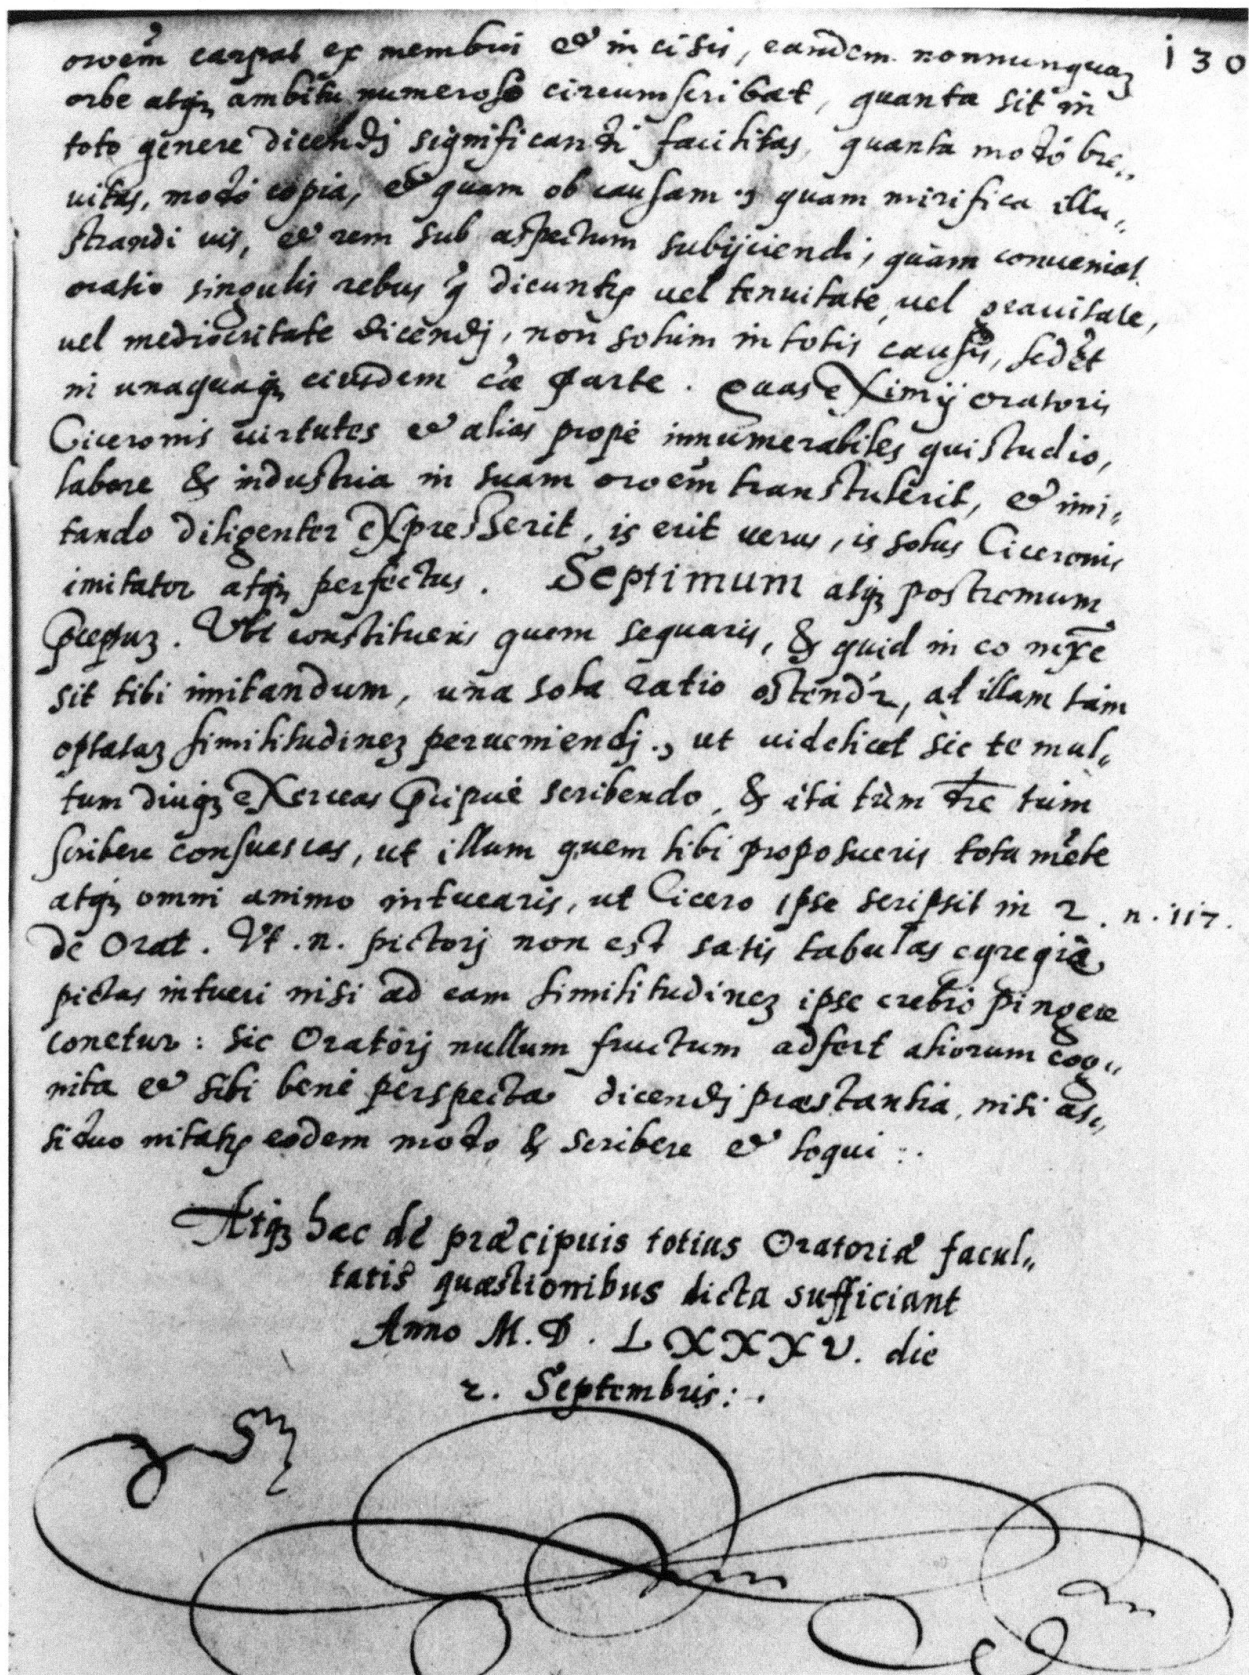 130
oroẽm carpat ex membris & incisis, eandem nonnunquaꝫ
orbe atqꝫ ambitu numeroso circumscribat, quanta sit in
toto genere dicendj significandi facilitas, quanta modò bre„
uitas, modò copia, & quam ob causam., quam mirifica illu„
strandi uis, & rem sub aspectum subijciendi, quàm conueniat
oratio singulis rebus q̃ dicuntꝭ uel tenuitate, uel grauitate,
uel mediocritate dicendj, non solùm in totis causis, sed ẽt
in unaquaqꝫ eiusdem cãe parte. Quas eXimij oratoris
Ciceronis uirtutes & alias propè innumerabiles qui studio,
labore & industria in suam oroẽm transtulerit, & imi„
tando diligenter eXpresserit, is erit uerus, is solus Ciceronis
imitator atqꝫ perfectus. Septimum atqꝫ postremum
p̃ceptuꝫ. Vbi constitueris quem sequaris, & quid in eo mx̃e
sit tibi imitandum, una sola ratio ostendr̃, ad illam tam
optataꝫ similitudineꝫ perueniendj., ut uidelicet sic te mul„
tum diuqꝫ eXerceas p̃cipuè scribendo, & ità tùm dr̃e tùm
scribere consuescas, ut illum quem tibi proposueris tota mẽte
atqꝫ omni animo intuearis, ut Cicero ipse scripsit in 2. n. 117.
de Orat. Vt .n. pictorj non est satis tabulas egregiè
pictas intueri nisi ad eam similitudineꝫ ipse crebrò pingere
conetur: sic Oratorj nullum fructum adfert aliorum cog„
nita & sibi benè perspecta dicendj præstantia, nisi as„
siduo nitatꝭ eodem modo & scribere & loqui :.
Atqꝫ hæc de præcipuis totius Oratoriæ facul„
tatis quæstionibus dicta sufficiant
Anno M. D. LXXXV. die
2. Septembris:.